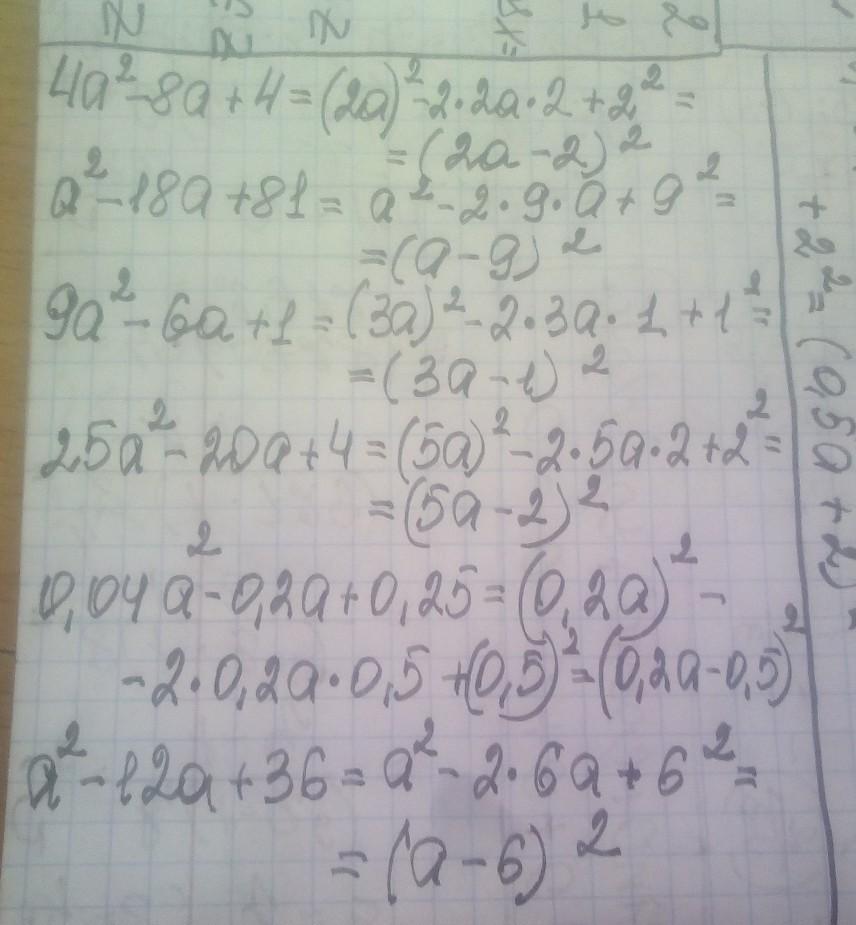 4a² - 8a + 4 = (2a)² - 2·2a·2 + 2² =
= (2a - 2)²
a² - 18a + 81 = a² - 2·9·a + 9² =
= (a - 9)²
9a² - 6a + 1 = (3a)² - 2·3a·1 + 1² =
= (3a - 1)²
25a² - 20a + 4 = (5a)² - 2·5a·2 + 2² =
= (5a - 2)²
0,04a² - 0,2a + 0,25 = (0,2a)² -
- 2·0,2a·0,5 + (0,5)² = (0,2a - 0,5)²
a² - 12a + 36 = a² - 2·6a + 6² =
= (a - 6)²
+ 2² = (0,5a + 2)²